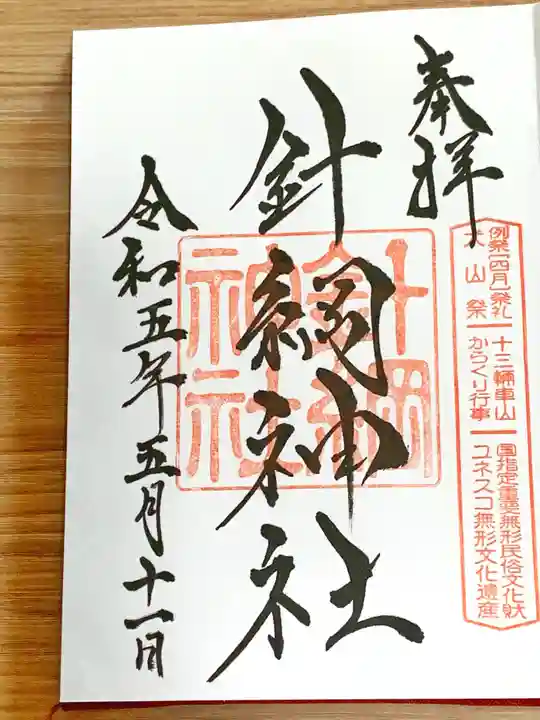 奉拝
例祭(四月)祭礼
犬山祭
十三輛車山
からくり行事
国指定重要無形民俗文化財
ユネスコ無形文化遺産
針綱神社
針綱
神社
令和五年五月十一日